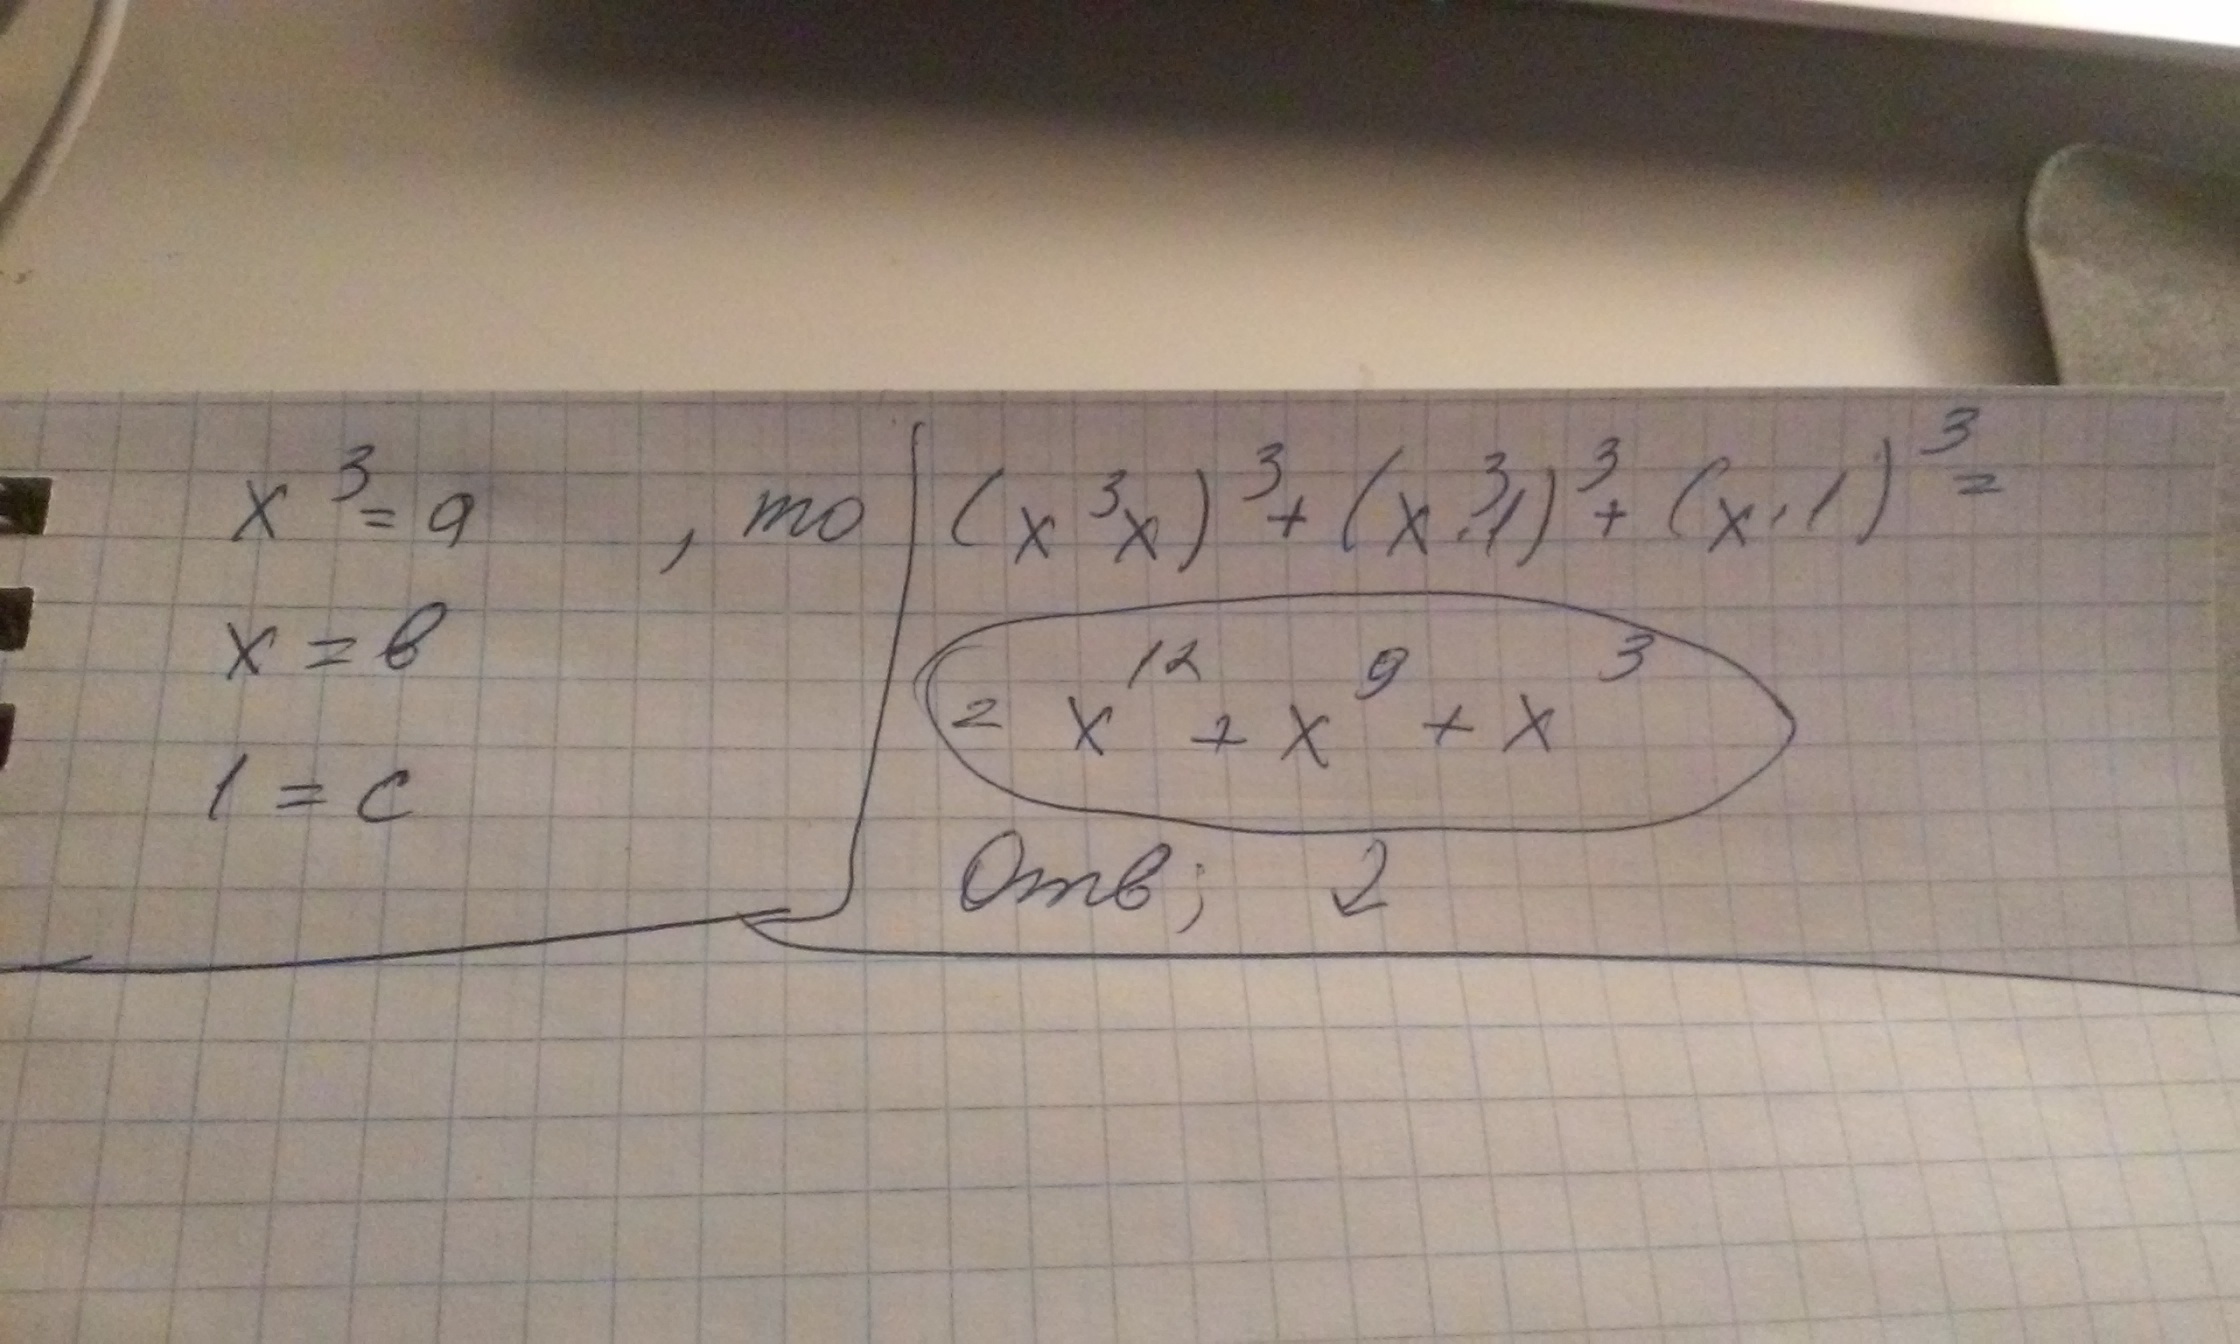 x³ = a , то
x = в
1 = c
(x³x)³ + (x³·1)³ + (x·1)³ =
= x¹² + x⁹ + x³
Отв; 2